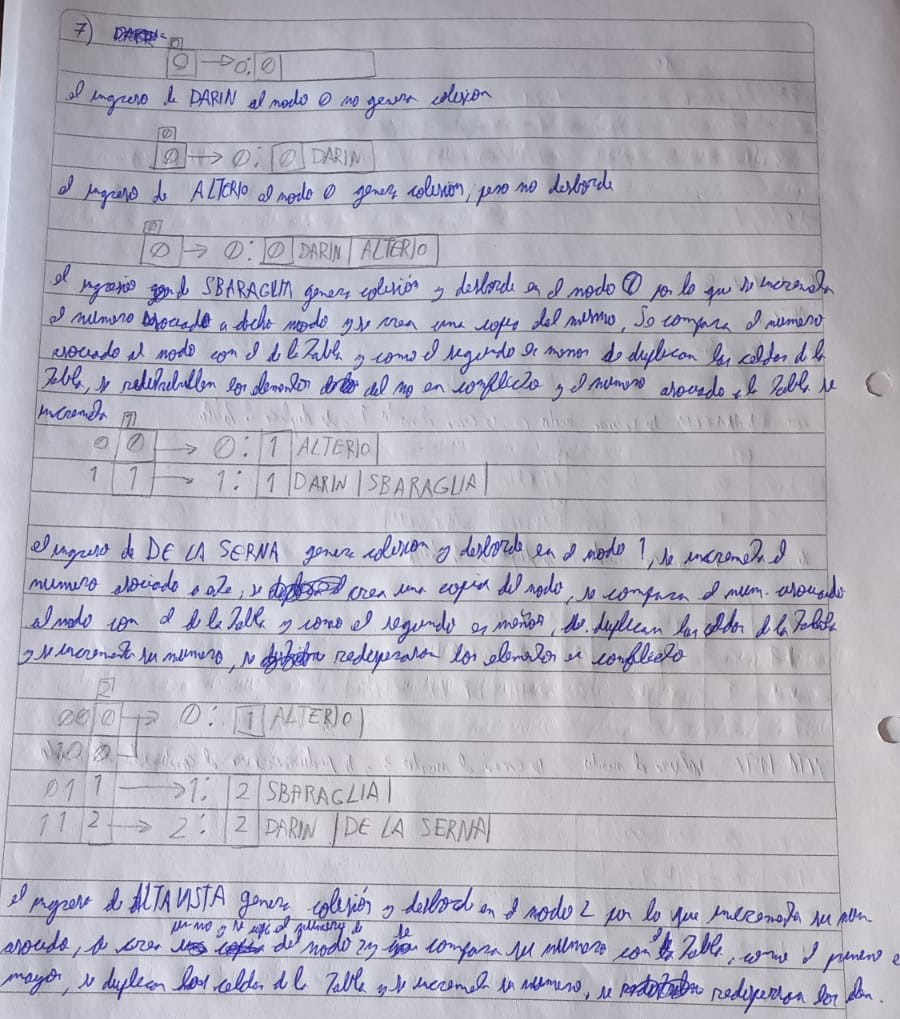 7)
0
0 → 0: 0
el ingreso de DARIN al nodo 0 no genera colision
0
0 → 0: 0 DARIN
el ingreso de ALTERIO al nodo 0 genera colisión, pero no desborda
0
0 → 0: 0 DARIN ALTERIO
el ingreso de SBARAGLIA genera colisión y desborda en el nodo 0 por lo que se incrementa
el numero asociado a dicho nodo y se crea una copia del mismo, Se compara el numero
asociado al nodo con el de la Tabla y como el segundo es menor se duplican las celdas de la
Tabla, se redistribullen los elementos del no en conflicto y el numero asociado a la Tabla se
incrementa
1
0 0 → 0: 1 ALTERIO
1 1 → 1: 1 DARIN SBARAGLIA
el ingreso de DE LA SERNA genera colision y desborda en el nodo 1, se incrementa el
numero asociado a este, se crea una copia del nodo, se compara el num. asociado
al nodo con el de la Tabla y como el segundo es menor, se duplican las celdas de la Tabla
y se incrementa su numero, se redispersaron los elementos en conflicto
2
00 0 → 0: 1 ALTERIO
10 0
01 1 → 1: 2 SBARAGLIA
11 2 → 2: 2 DARIN DE LA SERNA
el ingreso de ALTAVISTA genera colisión y desborda en el nodo 2 por lo que incrementa su num
asociado, se crea del nodo y se compara su numero con el de Tabla, como el primero es
mayor, se duplican las celdas de la Tabla y se incrementa su numero, se redispersan los elem.